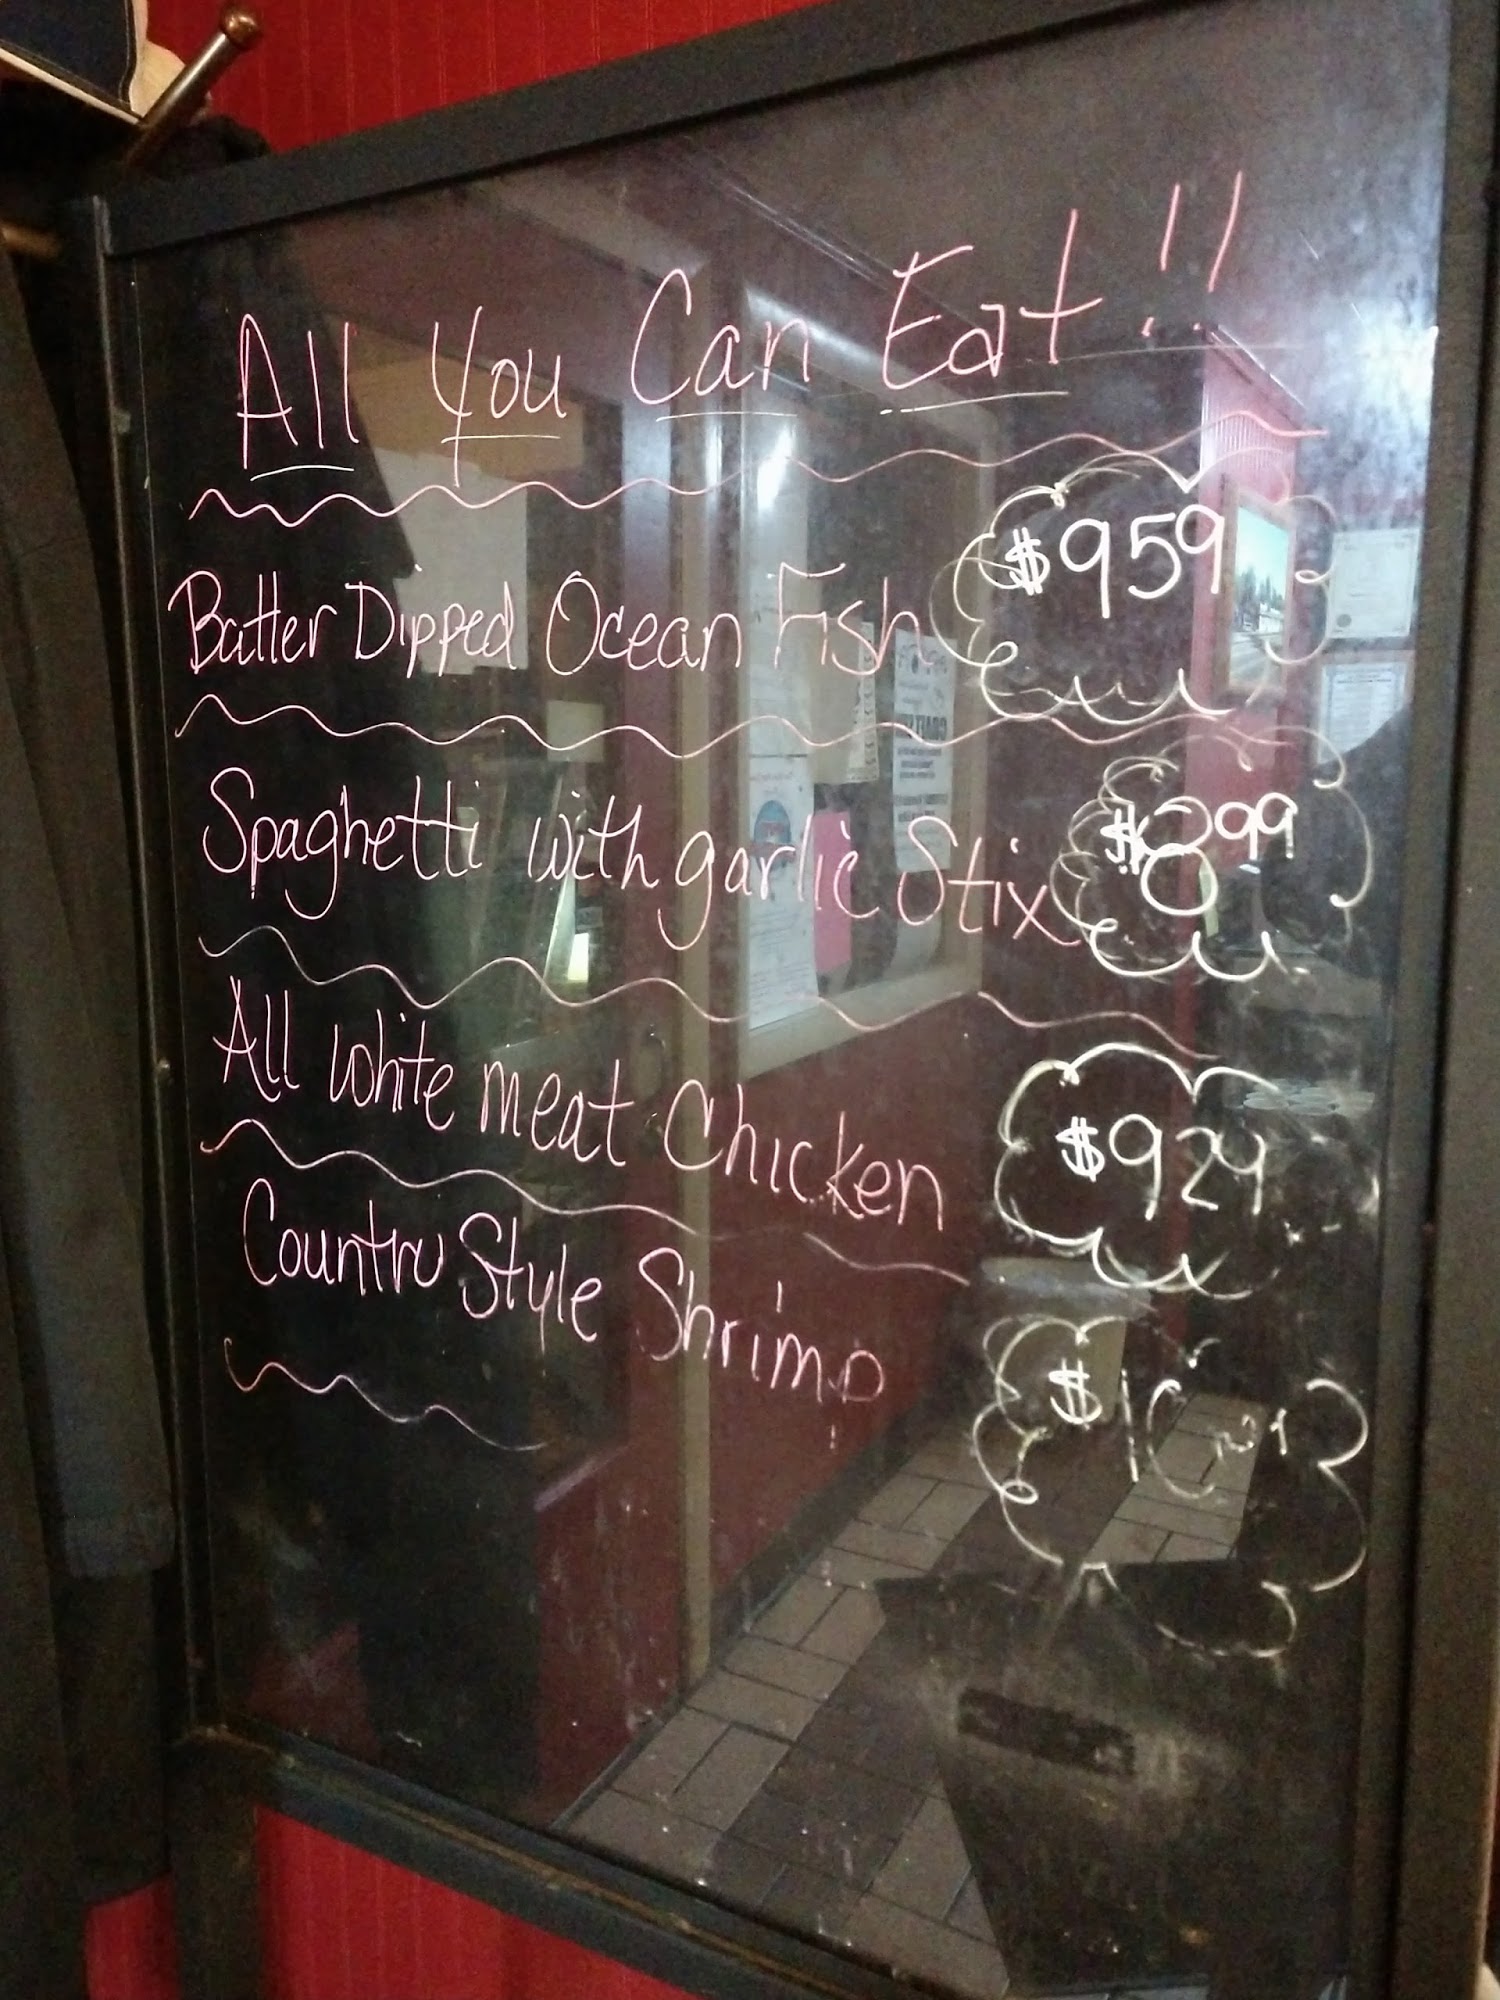 All You Can Eat!!
Batter Dipped Ocean Fish $9 59
Spaghetti with garlic Stix $8 99
All white meat Chicken $9 29
Country Style Shrimp